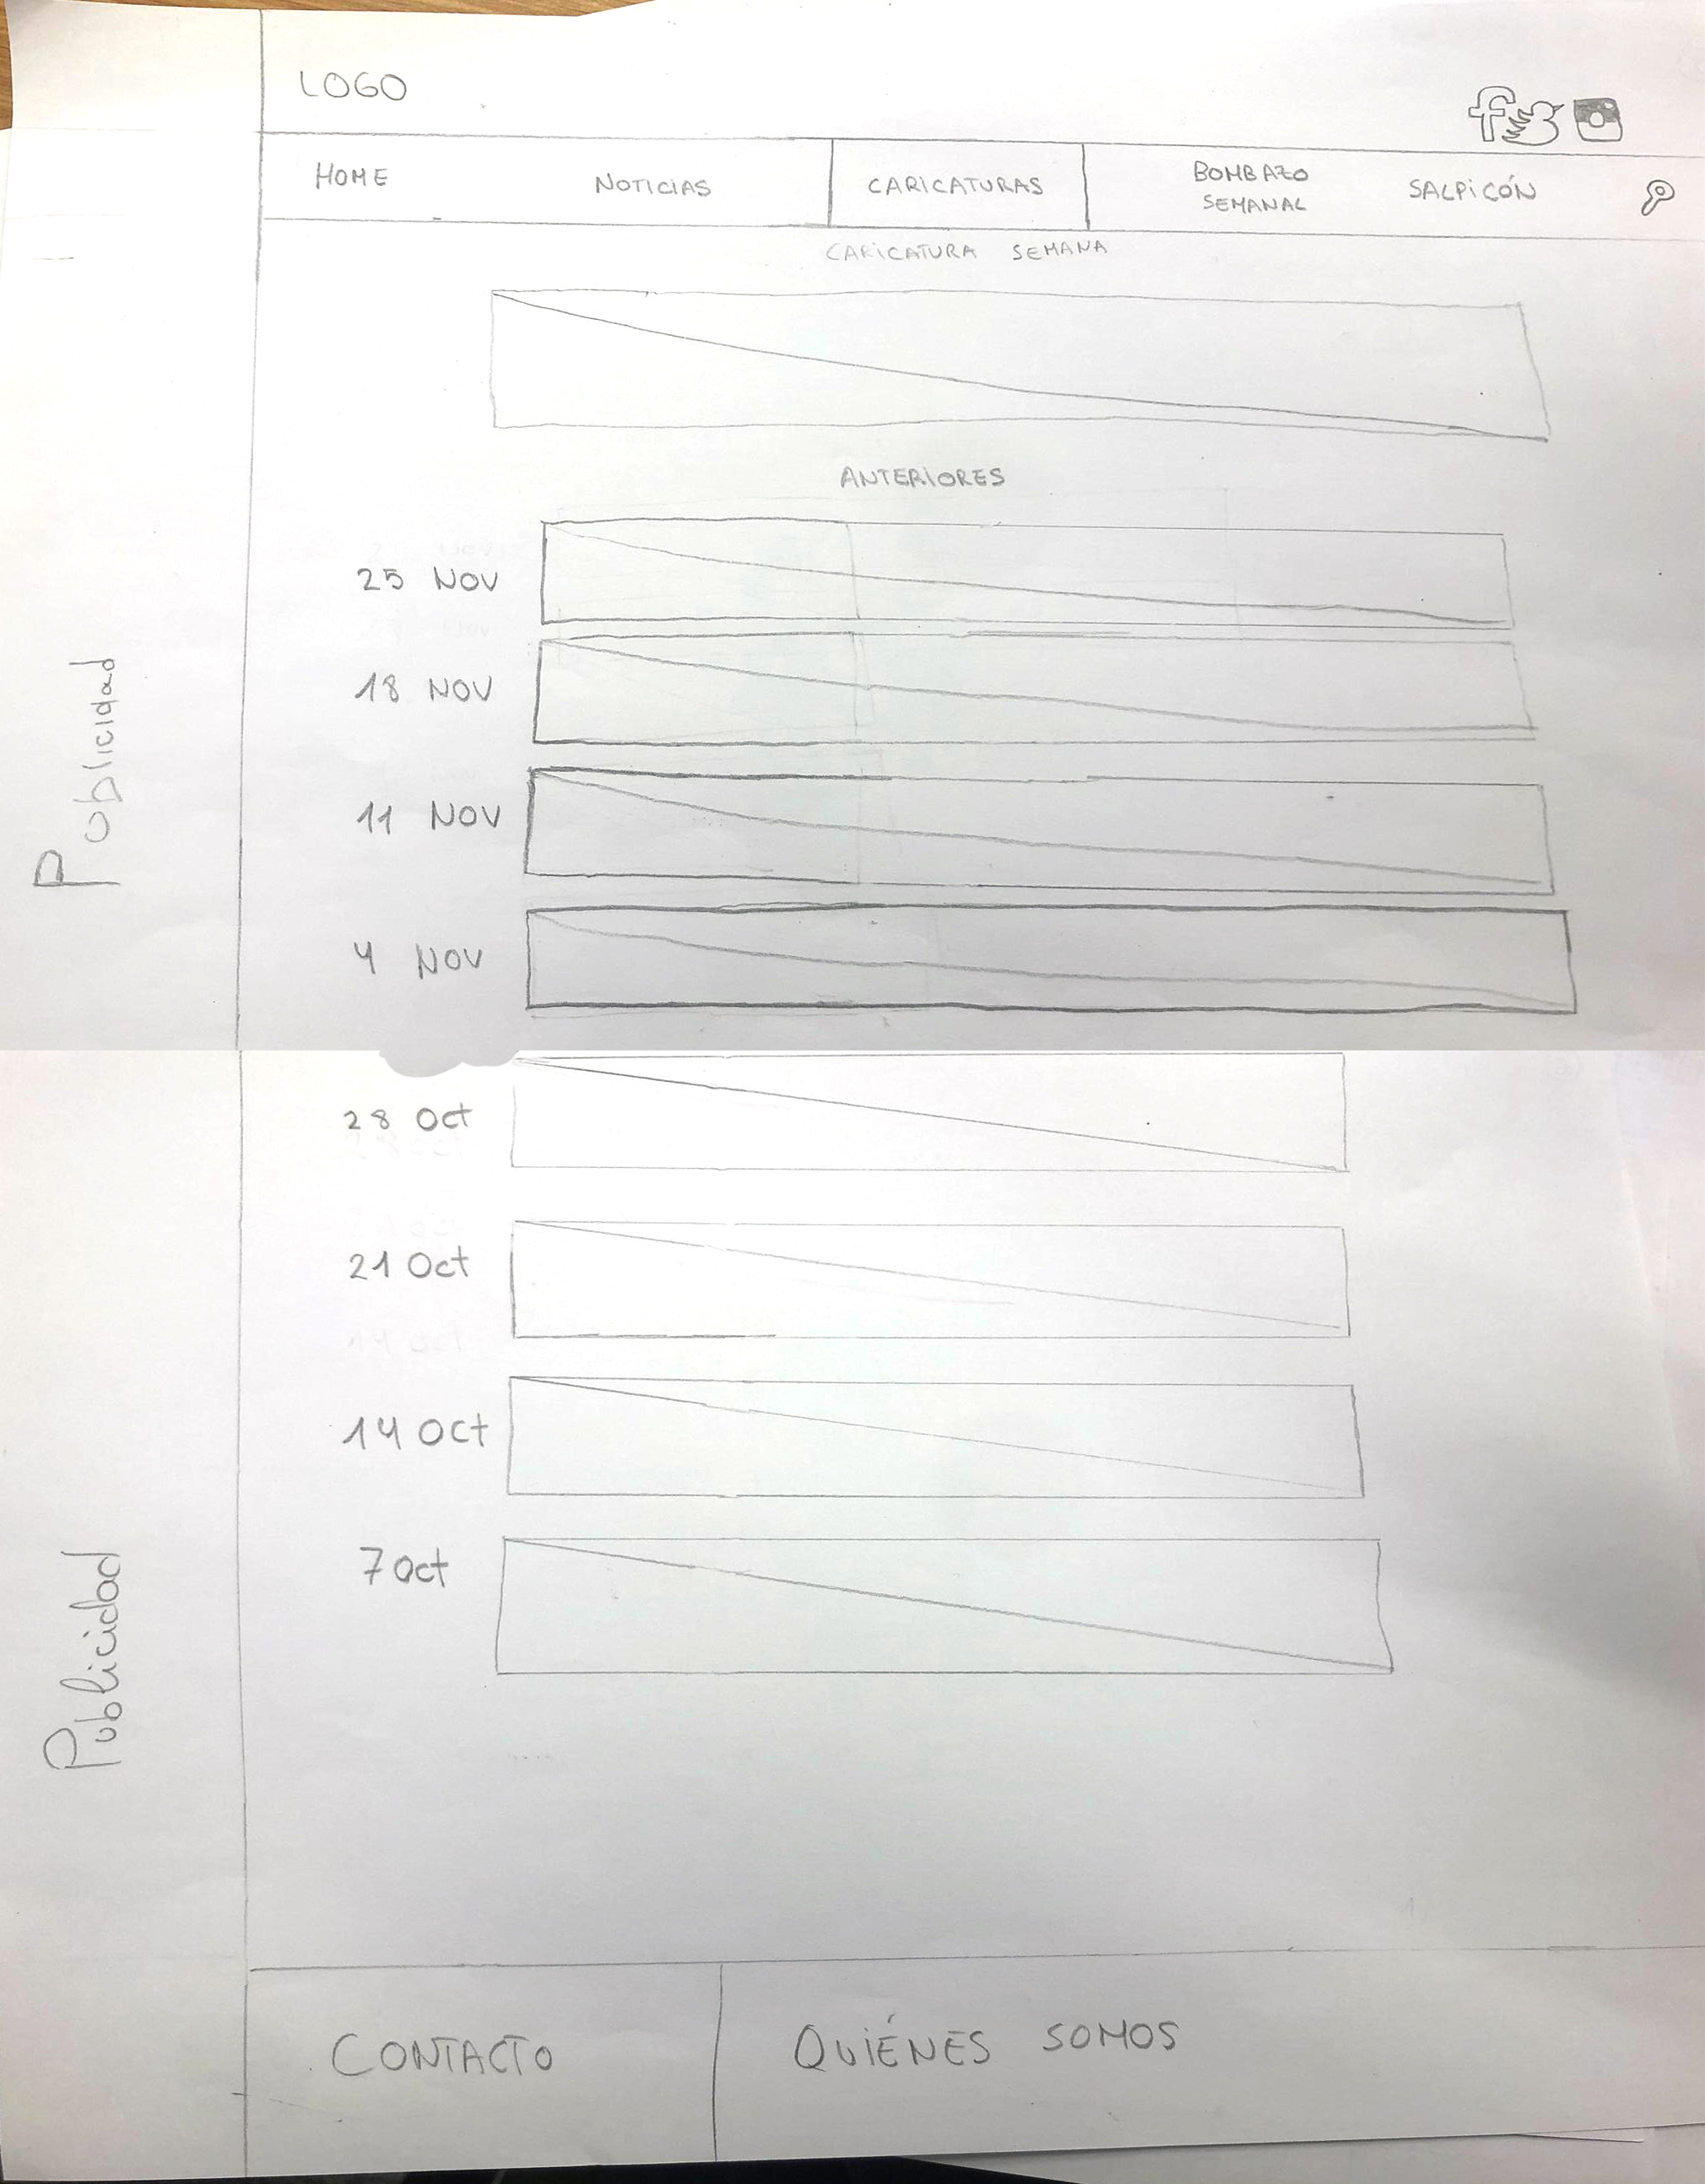 LOGO
HOME
NOTICIAS
CARICATURAS
BOMBAZO
SEMANAL
SALPICÓN
CARICATURA SEMANA
ANTERIORES
25 NOV
18 NOV
11 NOV
4 NOV
Publicidad
28 Oct
21 Oct
14 Oct
7 Oct
Publicidad
CONTACTO
QUIÉNES SOMOS